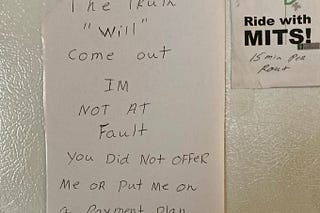 The Truth
"Will"
Come out
IM
NOT AT
Fault
You Did Not OFFER
Me OR Put Me on
a Payment Plan
Ride with
MITS!
15 min Per
Rout